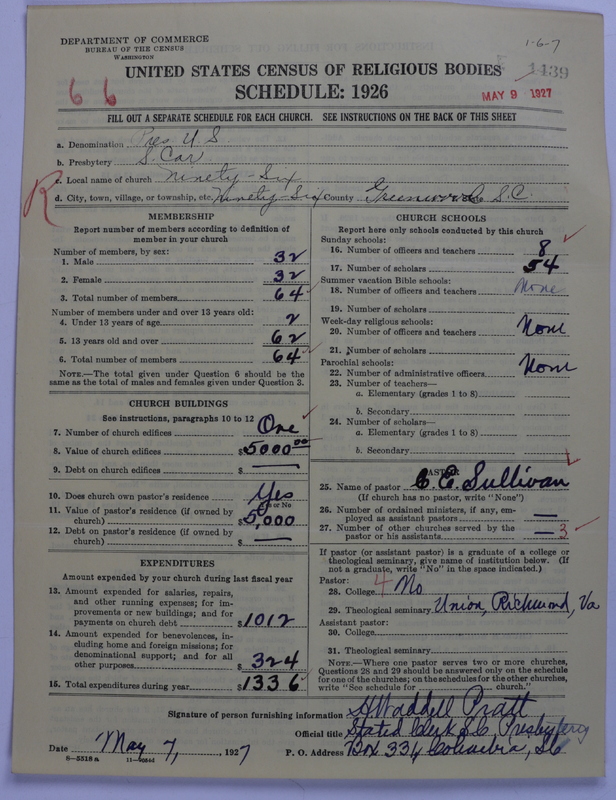 DEPARTMENT OF COMMERCE
BUREAU OF THE CENSUS
WASHINGTON
1-6-7
1439
UNITED STATES CENSUS OF RELIGIOUS BODIES
SCHEDULE: 1926
66
MAY 9 1927
FILL OUT A SEPARATE SCHEDULE FOR EACH CHURCH. SEE INSTRUCTIONS ON THE BACK OF THIS SHEET
a. Denomination Pres U.S.
b. Presbytery S. Car
c. Local name of church Ninety-Six
d. City, town, village, or township, etc. Ninety-Six County Greenwood S.C.
R
MEMBERSHIP
Report number of members according to definition of member in your church
Number of members, by sex:
1. Male 32
2. Female 32
3. Total number of members 64
Number of members under and over 13 years old:
4. Under 13 years of age 2
5. 13 years old and over 62
6. Total number of members 64
NOTE.—The total given under Question 6 should be the same as the total of males and females given under Question 3.
CHURCH BUILDINGS
See instructions, paragraphs 10 to 12
7. Number of church edifices One
8. Value of church edifices $5000.00
9. Debt on church edifices $ —
10. Does church own pastor's residence Yes
Yes or No
11. Value of pastor's residence (if owned by church) $5,000
12. Debt on pastor's residence (if owned by church) $ —
EXPENDITURES
Amount expended by your church during last fiscal year
13. Amount expended for salaries, repairs, and other running expenses; for improvements or new buildings; and for payments on church debt $1012
14. Amount expended for benevolences, including home and foreign missions; for denominational support; and for all other purposes 324
15. Total expenditures during year $1336
CHURCH SCHOOLS
Report here only schools conducted by this church
Sunday schools:
16. Number of officers and teachers 8
17. Number of scholars 54
Summer vacation Bible schools:
18. Number of officers and teachers None
19. Number of scholars
Week-day religious schools:
20. Number of officers and teachers None
21. Number of scholars
Parochial schools:
22. Number of administrative officers None
23. Number of teachers—
a. Elementary (grades 1 to 8)
b. Secondary
24. Number of scholars—
a. Elementary (grades 1 to 8)
b. Secondary
PASTOR
25. Name of pastor C. E. Sullivan
(If church has no pastor, write "None")
26. Number of ordained ministers, if any, employed as assistant pastors —
27. Number of other churches served by the pastor or his assistants — 3
If pastor (or assistant pastor) is a graduate of a college or theological seminary, give name of institution below. (If not a graduate, write "No" in the space indicated.)
Pastor:
28. College 4 No
29. Theological seminary Union, Richmond, Va
Assistant pastor:
30. College
31. Theological seminary
NOTE.—Where one pastor serves two or more churches, Questions 28 and 29 should be answered only on the schedule for one of the churches; on the schedules for the other churches, write "See schedule for church."
Signature of person furnishing information H Waddell Pratt
Official title Stated Clerk S.C. Presbytery
Date May 7, , 1927 P. O. Address Box 336 Columbia, SC
8—5318a